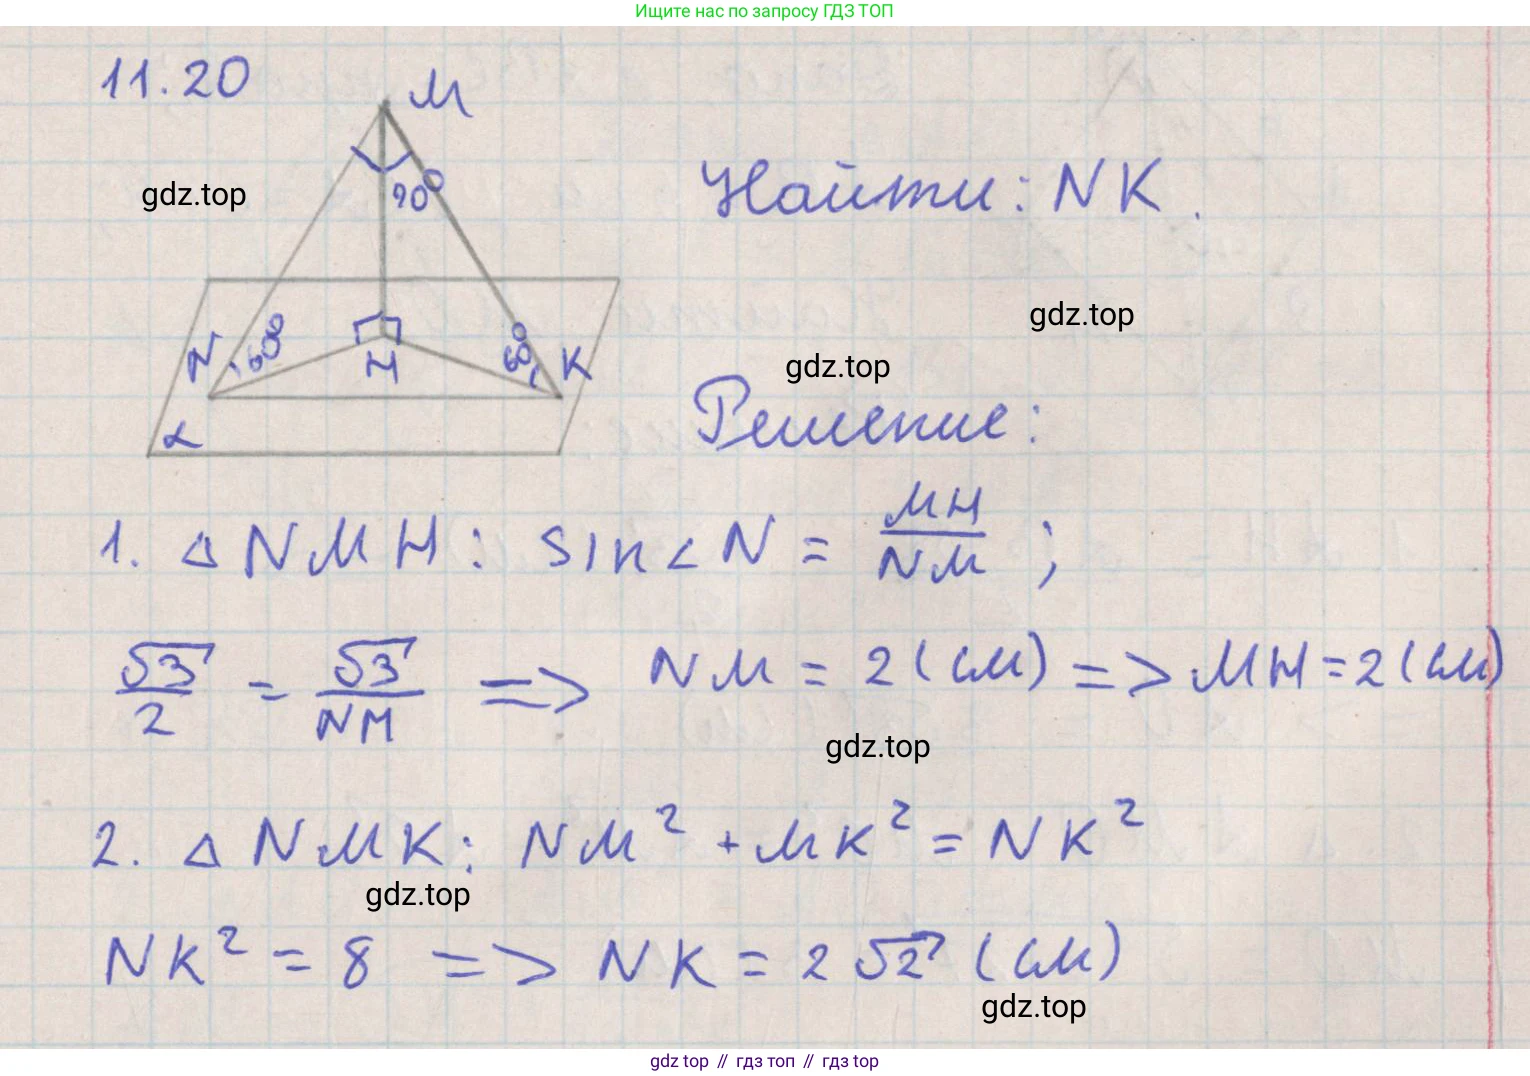 Ищите нас по запросу ГДЗ ТОП
11.20
M
gdz.top
90°
Найти: NK.
gdz.top
N 60° H 60° K
gdz.top
α
Решение:
1. △ NMH: sin∠N = MH/NM ;
√3/2 = √3/NM => NM = 2 (см) => MH = 2 (см)
gdz.top
2. △ NMK: NM² + MK² = NK²
gdz.top
NK² = 8 => NK = 2√2 (см)
gdz.top
gdz top // гдз топ // gdz top